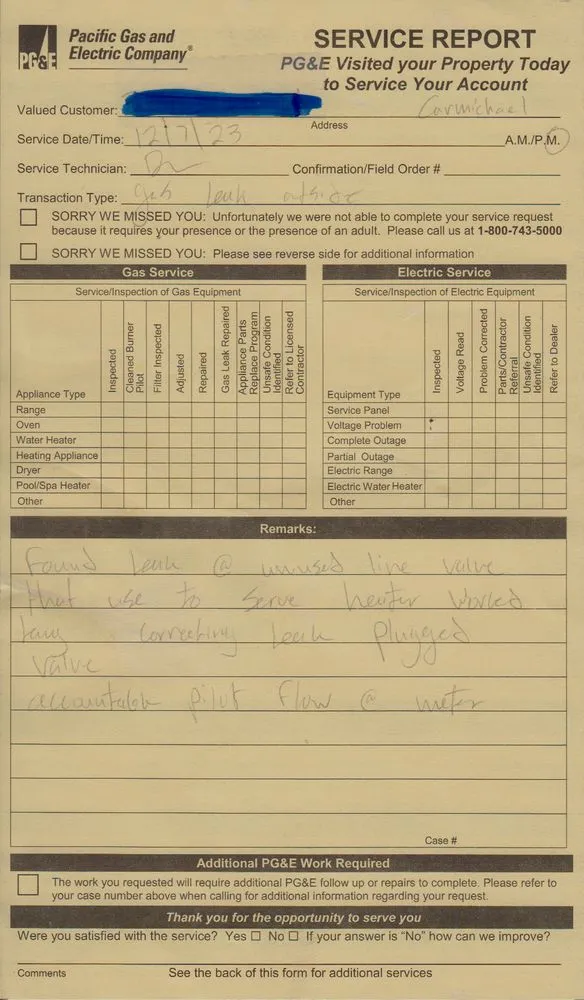 PG&E
Pacific Gas and
Electric Company®
SERVICE REPORT
PG&E Visited your Property Today
to Service Your Account
Valued Customer: Carmichael
Address
Service Date/Time: 12/7/23 A.M./P.M.
Service Technician: Confirmation/Field Order #
Transaction Type: gas leak outside
SORRY WE MISSED YOU: Unfortunately we were not able to complete your service request
because it requires your presence or the presence of an adult. Please call us at 1-800-743-5000
SORRY WE MISSED YOU: Please see reverse side for additional information
Gas Service
Service/Inspection of Gas Equipment
Appliance Type
Inspected
Cleaned Burner Pilot
Filter Inspected
Adjusted
Repaired
Gas Leak Repaired
Appliance Parts Replace Program
Unsafe Condition Identified
Refer to Licensed Contractor
Range
Oven
Water Heater
Heating Appliance
Dryer
Pool/Spa Heater
Other
Electric Service
Service/Inspection of Electric Equipment
Equipment Type
Inspected
Voltage Read
Problem Corrected
Parts/Contractor Referral
Unsafe Condition Identified
Refer to Dealer
Service Panel
Voltage Problem
Complete Outage
Partial Outage
Electric Range
Electric Water Heater
Other
Remarks:
Found leak @ unused line valve
that use to serve heater
correcting leak plugged
valve
accountable pilot flow @ meter
Case #
Additional PG&E Work Required
The work you requested will require additional PG&E follow up or repairs to complete. Please refer to
your case number above when calling for additional information regarding your request.
Thank you for the opportunity to serve you
Were you satisfied with the service? Yes ☐ No ☐ If your answer is “No” how can we improve?
Comments
See the back of this form for additional services